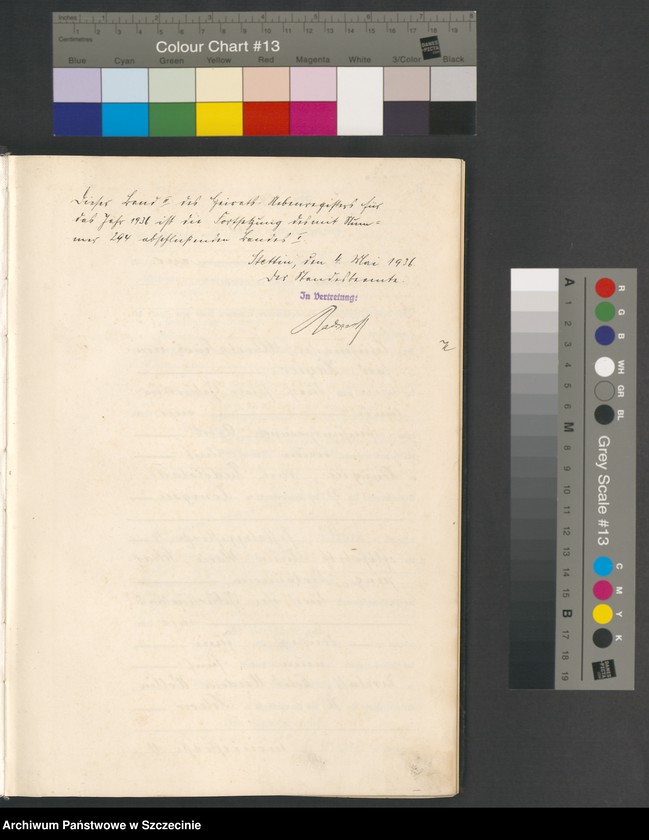 Inches 1 2 3 4 5 6 7 8
Centimetres 1 2 3 4 5 6 7 8 9 10 11 12 13 14 15 16 17 18 19
Colour Chart #13
Blue Cyan Green Yellow Red Magenta White 3/Color Black
Dieser Band II des Heirats-Nebenregisters für
das Jahr 1936 ist die Fortsetzung des mit Num-
mer 294 abschließenden Bandes I
Stettin, den 4. Mai 1936.
Der Standesbeamte.
In Vertretung:
A 1 2 3 4 5 6 M 8 9 10 11 12 13 14 15 B 17 18 19
R G B WH GR BL
Grey Scale #13
C M Y K
Archiwum Państwowe w Szczecinie